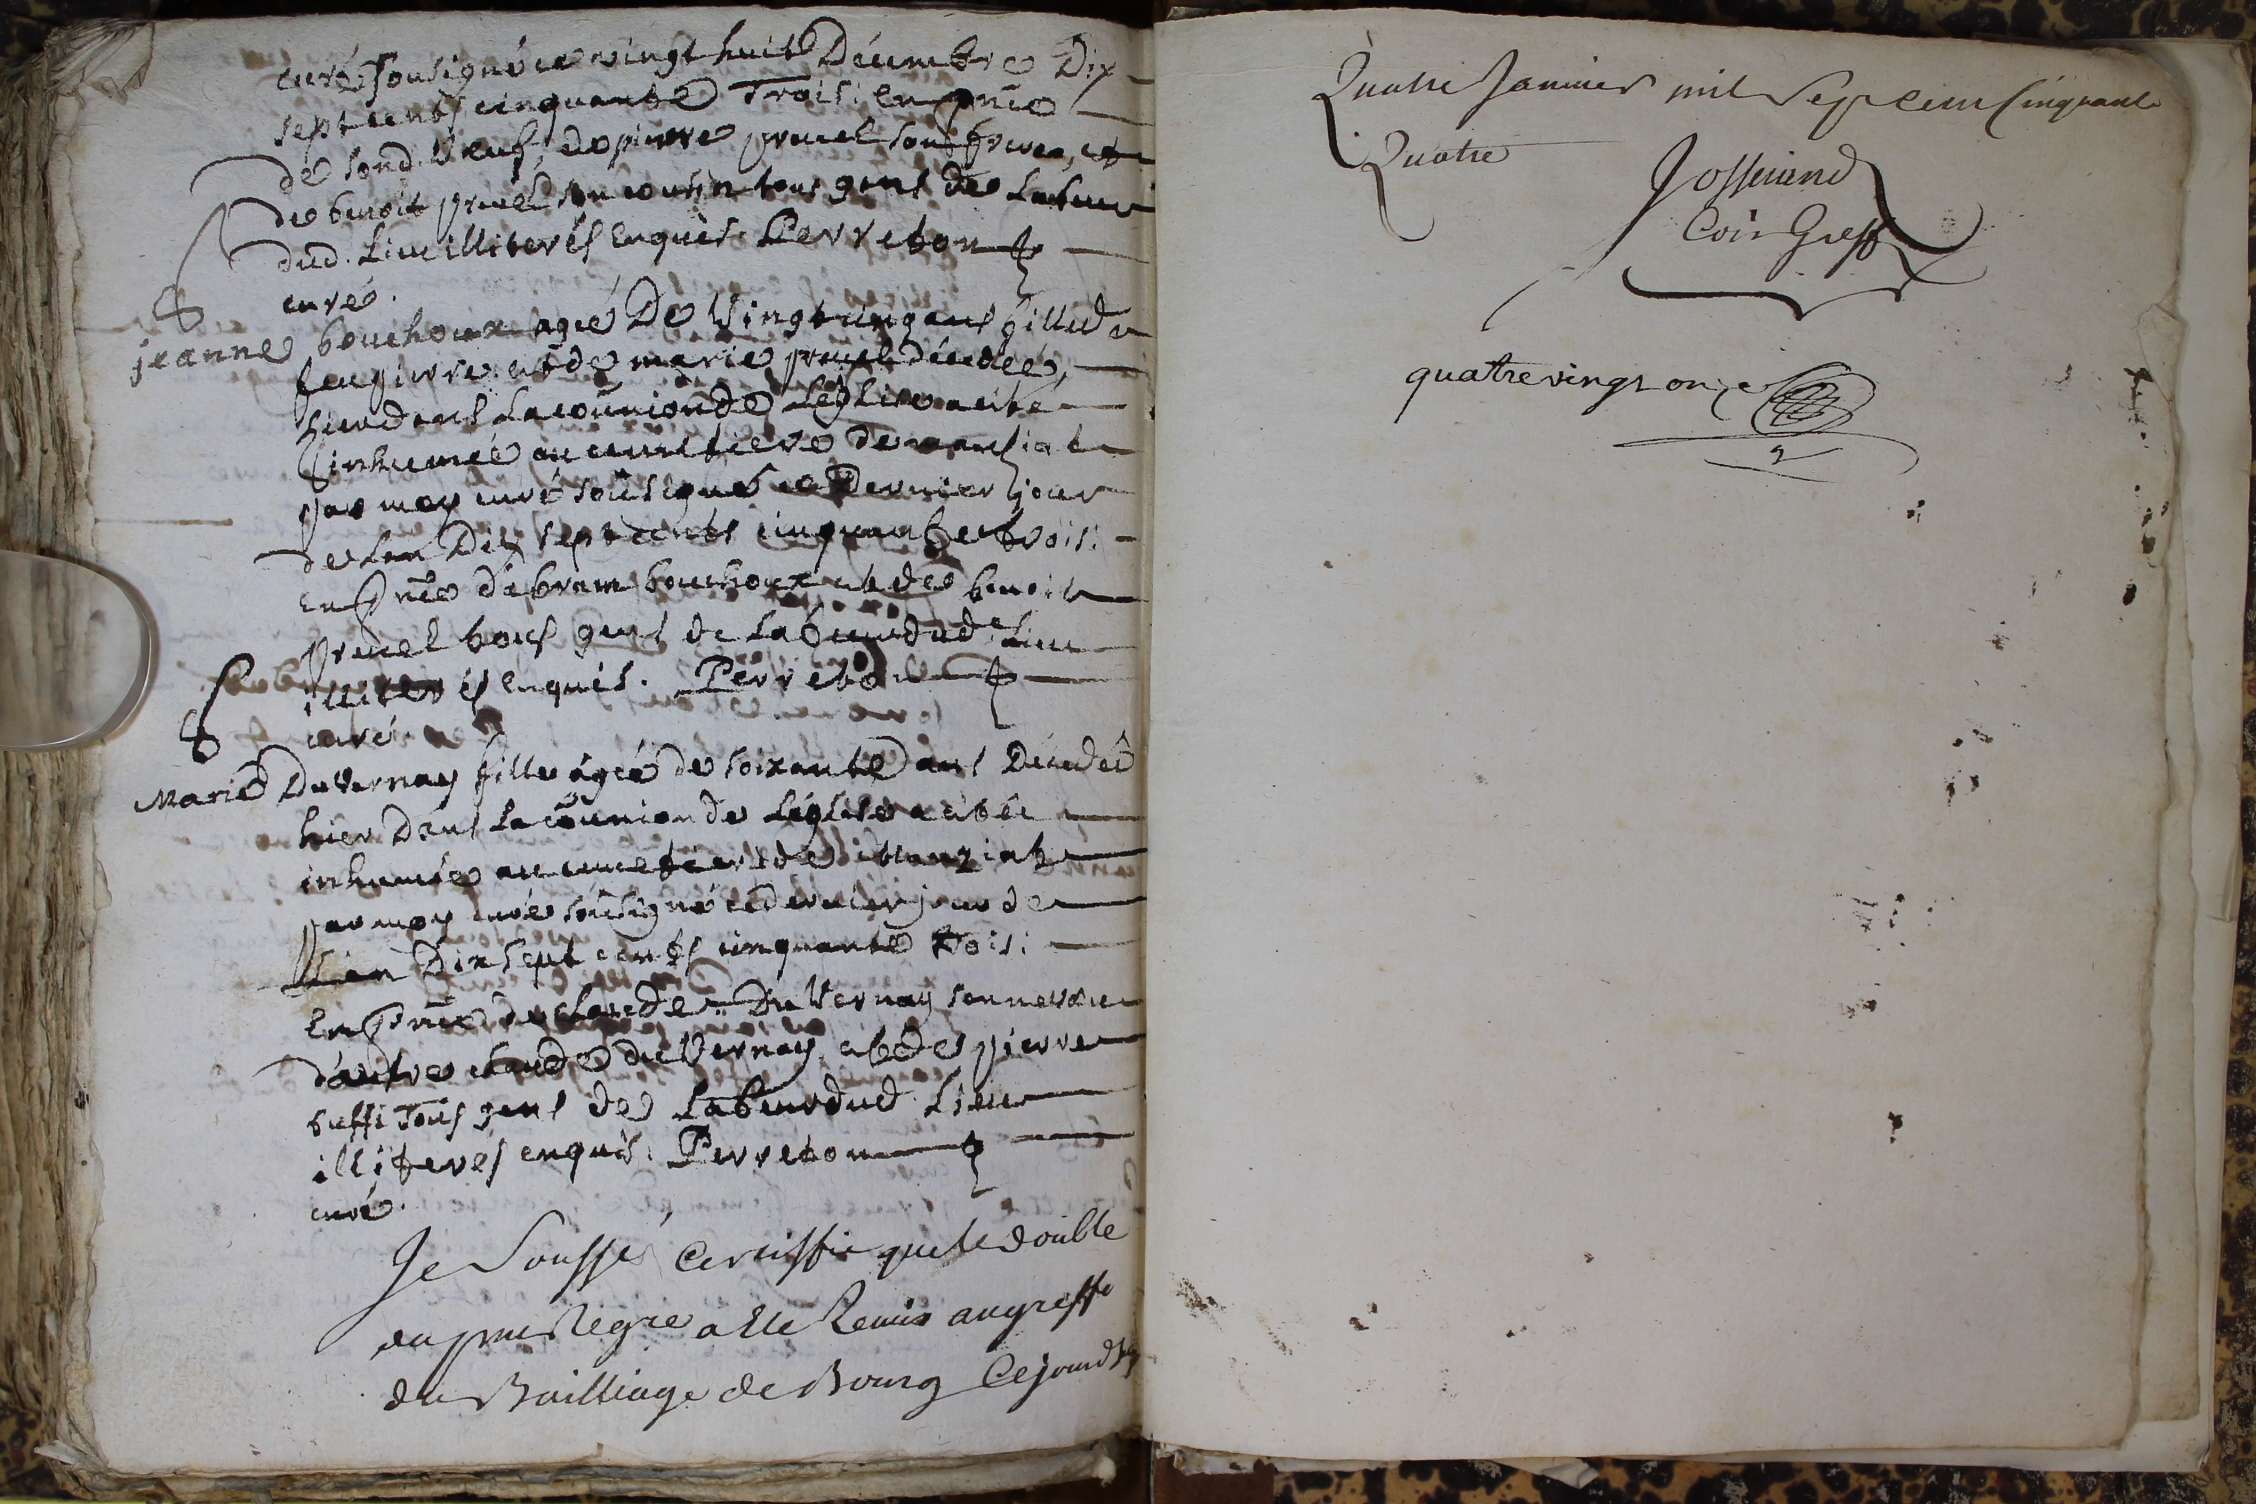 curé sousigné ce vingt huit Décembre Dix
sept cents cinquante Trois: en pñce
de sond. Veuf, de pierre pruvel son frere, et
de benoit pruvel son cousin tous gens de labeur
dud. Lieu illiterés enquis. Perreton
curé.
jeanne bouchoux agée De Vingt un ans fille de
feu pierre et de marie pruvel décédée,
hier dans la coṁunion de L'eglise a eté
inhumée au cimetiere de manziat
par moy curé soûsigné ce Dernier jour
de Lan Dix sept cents cinquante trois:
en pñce d'abram bouchoux et de benoit
pruvel tous gens de Labeur dud. Lieu
illiterés enquis. Perreton
curé.
Marie Du Vernay fille âgée de soixante ans Décedeé
hier Dans la coṁunion de L'église a etéé
inhumée au cimetiere de Manziat
par moy curé soûsigné ce dernier jour de
L'an Dix sept cents cinquante Trois:
En pñce de claude Du Vernay son neveu
d'autre claude du Vernay et de pierre
buffi Tous gens de Labeur dud. Lieu
illiterés enquis. Perreton
curé.
Je Soussé Certiffie que le double
du pnt Regre a Ete Remis au greffe
du Bailliage de Bourg Cejourdhuy
Quatre Janvier mil Sept cent Cinquante
Quatre
Josserand
Cois Greff
quatre vingt onze